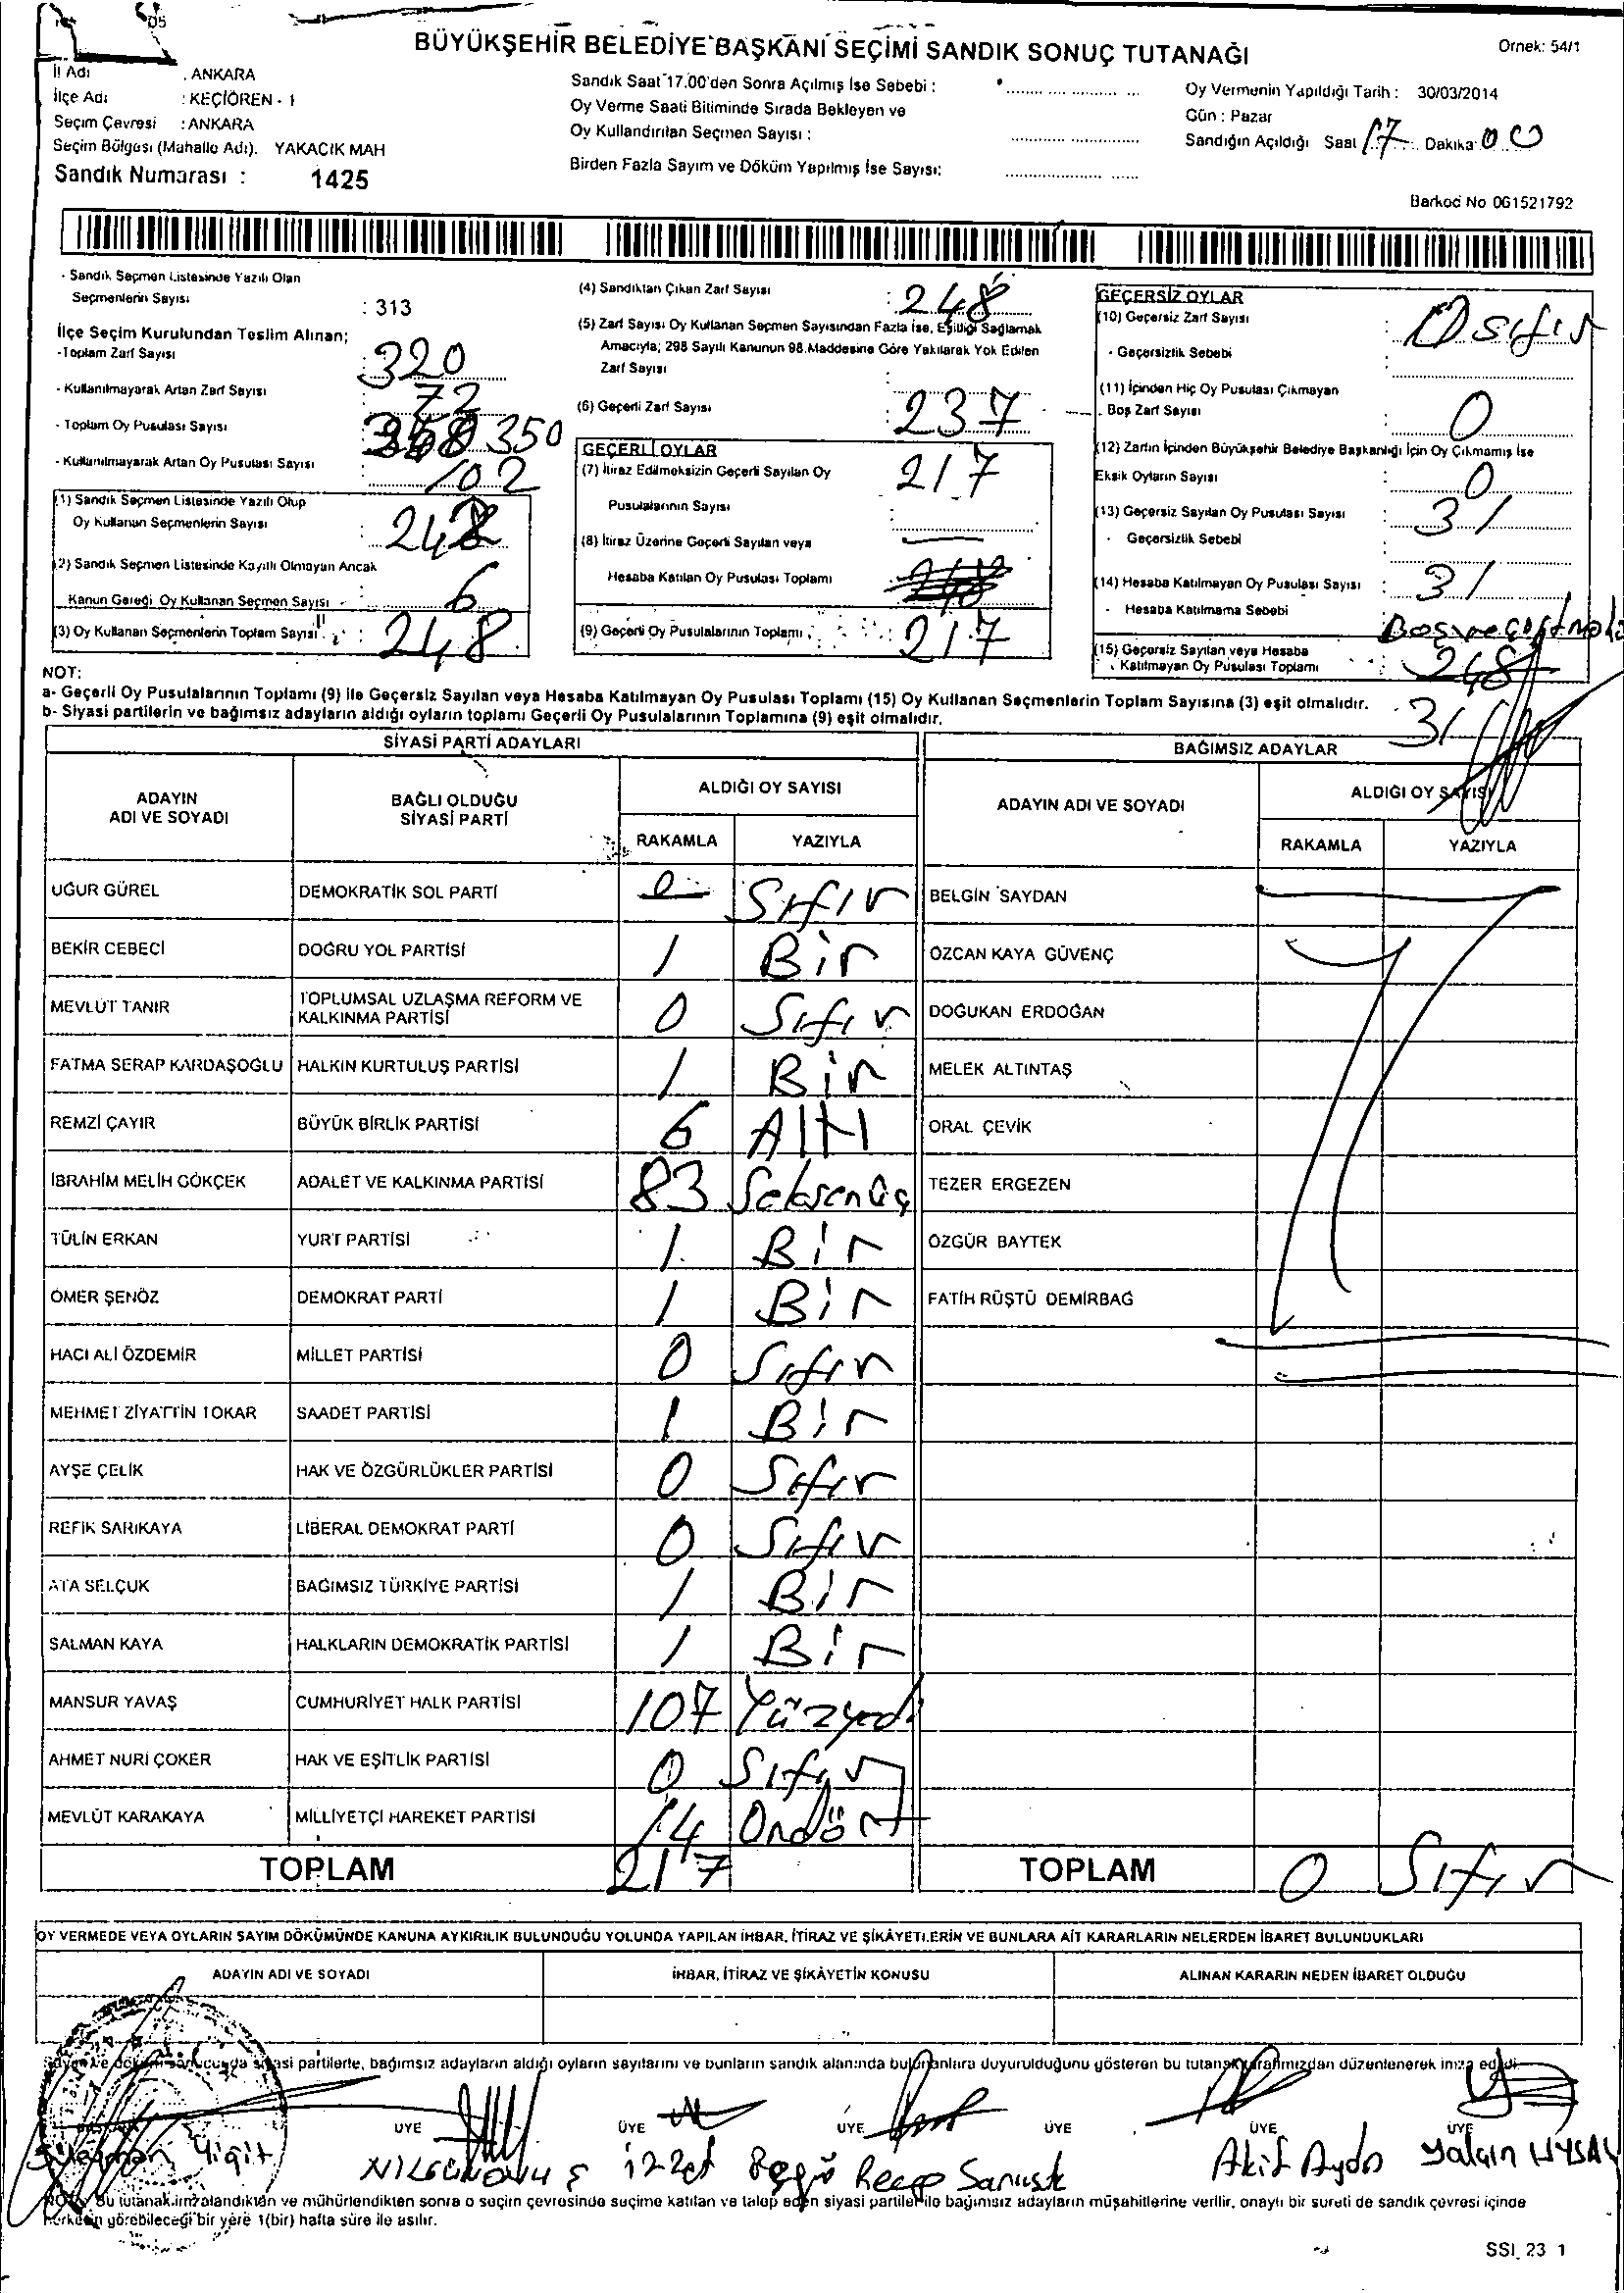 BÜYÜKŞEHİR BELEDİYE BAŞKANI SEÇİMİ SANDIK SONUÇ TUTANAĞI
Örnek: 54/1
İl Adı : ANKARA
İlçe Adı : KEÇİÖREN - 1
Seçim Çevresi : ANKARA
Seçim Bölgesi (Mahalle Adı). YAKACIK MAH
Sandık Numarası : 1425
Sandık Saat 17.00'den Sonra Açılmış İse Sebebi :
Oy Verme Saati Bitiminde Sırada Bekleyen ve
Oy Kullandırılan Seçmen Sayısı :
Birden Fazla Sayım ve Döküm Yapılmış İse Sayısı:
Oy Vermenin Yapıldığı Tarih : 30/03/2014
Gün : Pazar
Sandığın Açıldığı Saat 17 Dakika 00
Barkod No 061521792
- Sandık Seçmen Listesinde Yazılı Olan
Seçmenlerin Sayısı : 313
İlçe Seçim Kurulundan Teslim Alınan;
-Toplam Zarf Sayısı : 320
- Kullanılmayarak Artan Zarf Sayısı : 72
- Toplam Oy Pusulası Sayısı 350
- Kullanılmayarak Artan Oy Pusulası Sayısı : 102
(1) Sandık Seçmen Listesinde Yazılı Olup
Oy Kullanan Seçmenlerin Sayısı : 242
(2) Sandık Seçmen Listesinde Kayıtlı Olmayan Ancak
Kanun Gereği Oy Kullanan Seçmen Sayısı : 6
(3) Oy Kullanan Seçmenlerin Toplam Sayısı : 248
(4) Sandıktan Çıkan Zarf Sayısı : 248
(5) Zarf Sayısı Oy Kullanan Seçmen Sayısından Fazla İse, Eşitliği Sağlamak
Amacıyla; 298 Sayılı Kanunun 98.Maddesine Göre Yakılarak Yok Edilen
Zarf Sayısı :
(6) Geçerli Zarf Sayısı : 237
GEÇERLİ OYLAR
(7) İtiraz Edilmeksizin Geçerli Sayılan Oy 217
Pusulalarının Sayısı :
(8) İtiraz Üzerine Geçerli Sayılan veya
Hesaba Katılan Oy Pusulası Toplamı
(9) Geçerli Oy Pusulalarının Toplamı : 217
GEÇERSİZ OYLAR
(10) Geçersiz Zarf Sayısı : 0 sıfır
- Geçersizlik Sebebi :
(11) İçinden Hiç Oy Pusulası Çıkmayan
Boş Zarf Sayısı : 0
(12) Zarfın İçinden Büyükşehir Belediye Başkanlığı İçin Oy Çıkmamış İse
Eksik Oyların Sayısı : 0
(13) Geçersiz Sayılan Oy Pusulası Sayısı : 31
- Geçersizlik Sebebi :
(14) Hesaba Katılmayan Oy Pusulası Sayısı : 31
- Hesaba Katılmama Sebebi :
(15) Geçersiz Sayılan veya Hesaba
Katılmayan Oy Pusulası Toplamı : 248
31
NOT:
a- Geçerli Oy Pusulalarının Toplamı (9) ile Geçersiz Sayılan veya Hesaba Katılmayan Oy Pusulası Toplamı (15) Oy Kullanan Seçmenlerin Toplam Sayısına (3) eşit olmalıdır.
b- Siyasi partilerin ve bağımsız adayların aldığı oyların toplamı Geçerli Oy Pusulalarının Toplamına (9) eşit olmalıdır.
SİYASİ PARTİ ADAYLARI
BAĞIMSIZ ADAYLAR
ADAYIN ADI VE SOYADI
BAĞLI OLDUĞU SİYASİ PARTİ
ALDIĞI OY SAYISI
RAKAMLA YAZIYLA
ADAYIN ADI VE SOYADI
ALDIĞI OY SAYISI
RAKAMLA YAZIYLA
UĞUR GÜREL DEMOKRATİK SOL PARTİ 0 Sıfır BELGİN SAYDAN
BEKİR CEBECİ DOĞRU YOL PARTİSİ 1 Bir ÖZCAN KAYA GÜVENÇ
MEVLÜT TANIR TOPLUMSAL UZLAŞMA REFORM VE KALKINMA PARTİSİ 0 Sıfır DOĞUKAN ERDOĞAN
FATMA SERAP KARDAŞOĞLU HALKIN KURTULUŞ PARTİSİ 1 Bir MELEK ALTINTAŞ
REMZİ ÇAYIR BÜYÜK BİRLİK PARTİSİ 6 Altı ORAL ÇEVİK
İBRAHİM MELİH GÖKÇEK ADALET VE KALKINMA PARTİSİ 83 Seksenüç TEZER ERGEZEN
TÜLİN ERKAN YURT PARTİSİ 1 Bir ÖZGÜR BAYTEK
ÖMER ŞENÖZ DEMOKRAT PARTİ 1 Bir FATİH RÜŞTÜ DEMİRBAĞ
HACI ALİ ÖZDEMİR MİLLET PARTİSİ 0 Sıfır
MEHMET ZİYATTİN TOKAR SAADET PARTİSİ 1 Bir
AYŞE ÇELİK HAK VE ÖZGÜRLÜKLER PARTİSİ 0 Sıfır
REFİK SARIKAYA LİBERAL DEMOKRAT PARTİ 0 Sıfır
ATA SELÇUK BAĞIMSIZ TÜRKİYE PARTİSİ 1 Bir
SALMAN KAYA HALKLARIN DEMOKRATİK PARTİSİ 1 Bir
MANSUR YAVAŞ CUMHURİYET HALK PARTİSİ 107 Yüzyedi
AHMET NURİ ÇOKER HAK VE EŞİTLİK PARTİSİ 0 Sıfır
MEVLÜT KARAKAYA MİLLİYETÇİ HAREKET PARTİSİ 14 Ondört
TOPLAM 217 TOPLAM 0 Sıfır
OY VERMEDE VEYA OYLARIN SAYIM DÖKÜMÜNDE KANUNA AYKIRILIK BULUNDUĞU YOLUNDA YAPILAN İHBAR, İTİRAZ VE ŞİKÂYETLERİN VE BUNLARA AİT KARARLARIN NELERDEN İBARET BULUNDUKLARI
ADAYIN ADI VE SOYADI İHBAR, İTİRAZ VE ŞİKÂYETİN KONUSU ALINAN KARARIN NEDEN İBARET OLDUĞU
siyasi partilerle, bağımsız adayların aldığı oyların sayılarını ve bunların sandık alanında bulunanlara duyurulduğunu gösteren bu tutanak tarafımızdan düzenlenerek imza edildi.
ÜYE ÜYE ÜYE ÜYE ÜYE ÜYE
Süleyman Yiğit İzzet Recep Akif Aydın Yalçın UYSAL
Bu tutanak imzalandıktan ve mühürlendikten sonra o seçim çevresinde seçime katılan ve talep eden siyasi partiler ile bağımsız adayların müşahitlerine verilir, onaylı bir sureti de sandık çevresi içinde
herkesin görebileceği bir yere 1(bir) hafta süre ile asılır.
SSI_23 1